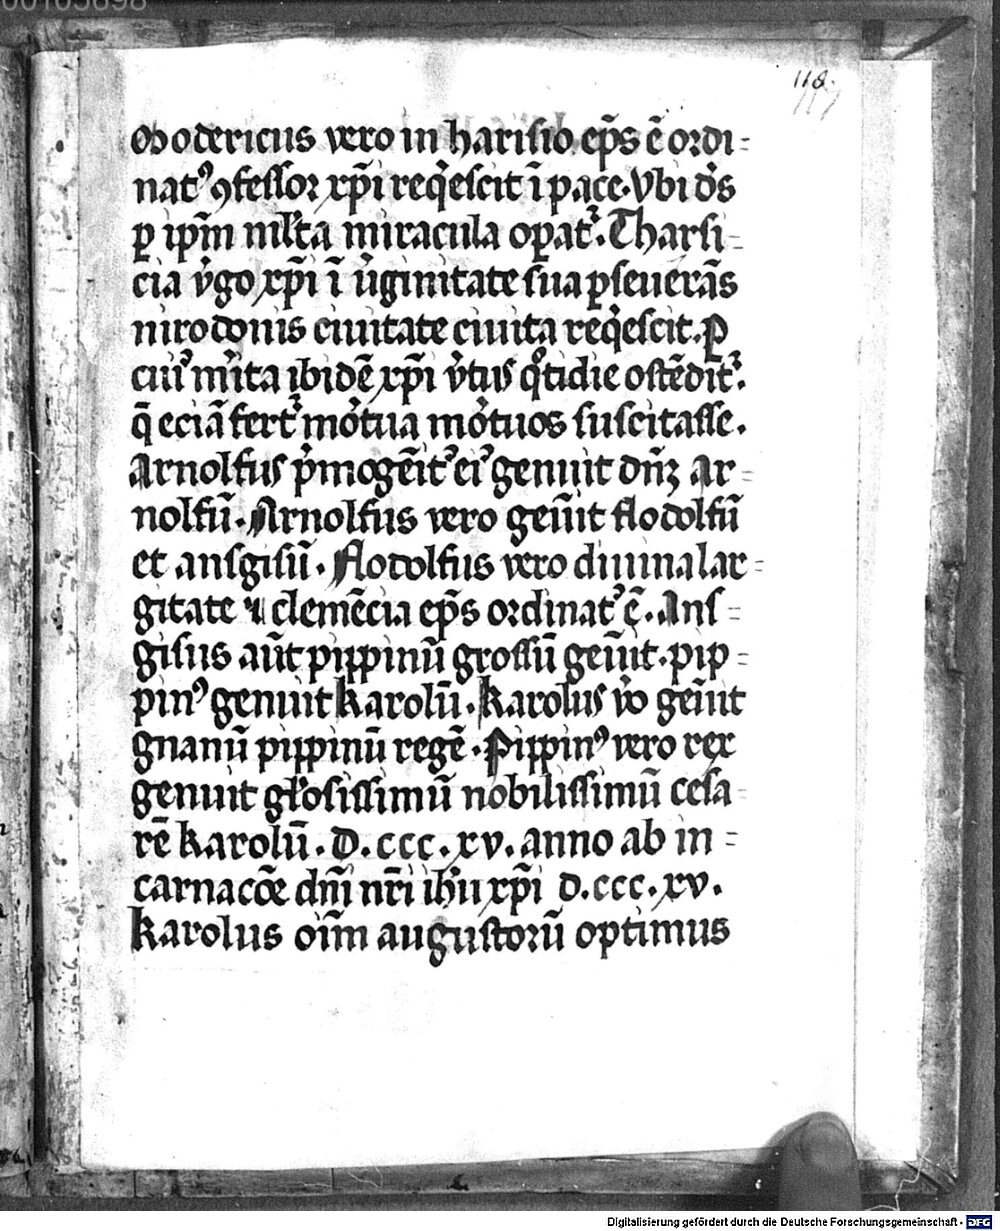 00105898
118
Modericus vero in harisio ep̄s ē ordi-
natꝰ ꝯfessor xp̄i reqͥescit ī pace. Vbi ds̄
ꝑ ip̄m ml̄ta miracula oꝑatᷣ. Tharsi-
cia vͥgo xp̄i ī vͥginitate sua ꝑseuerās
nirodonis ciuitate ciuita reqͥescit. ꝑ
cuiꝰ mͥita ibidē xp̄i vͥtus qͦtidie ostēditᷣ.
q̄ eciā fertᷣ moͬtua moͬtuos suscitasse.
Arnolfus pͥmogēitꝰ eiꝰ genuit dn̄ꝫ Ar-
nolfū. Arnolfus vero geūit flodolfū
et ansgisū. Flodolfus vero diuina lar-
gitate ⁊ clemēcia ep̄s ordinatꝰ ē. Ans-
gisus aūt pippinū grossū geūit. pip-
pinꝰ genuit karolū. Karolus vͦo geūit
gnanū pippinū regē. Pippinꝰ vero rex
genuit gl̄osissimū nobilissimū cesa-
rē karolū. D. ccc. xv. anno ab in-
carnacōe dn̄i nr̄i ih̄u xp̄i D. ccc. xv.
Karolus oīm augustorū optimus
Digitalisierung gefördert durch die Deutsche Forschungsgemeinschaft - DFG